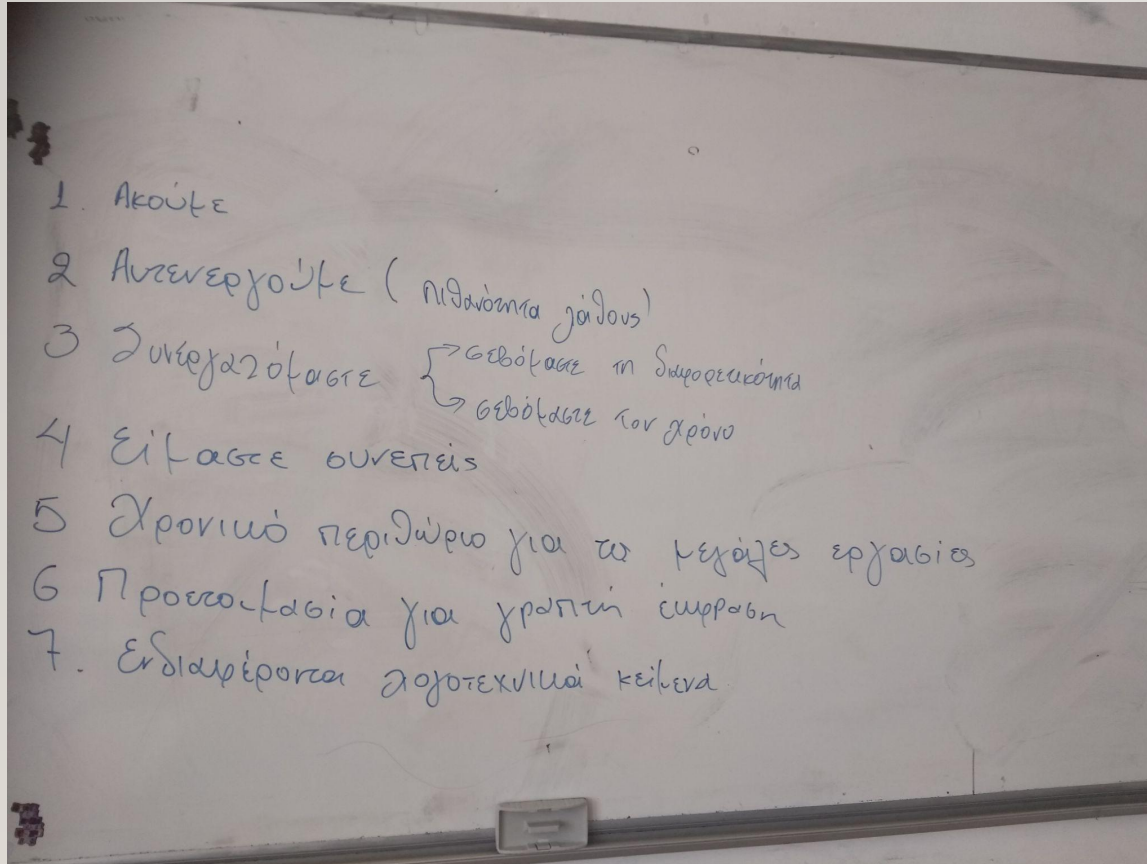 1. Ακούμε
2 Αυτενεργούμε (πιθανότητα λάθους)
3 Συνεργαζόμαστε
→ σεβόμαστε τη διαφορετικότητα
→ σεβόμαστε τον χρόνο
4 Είμαστε συνεπείς
5 Χρονικό περιθώριο για τις μεγάλες εργασίες
6 Προετοιμασία για γραπτή έκφραση
7. Ενδιαφέροντα λογοτεχνικά κείμενα